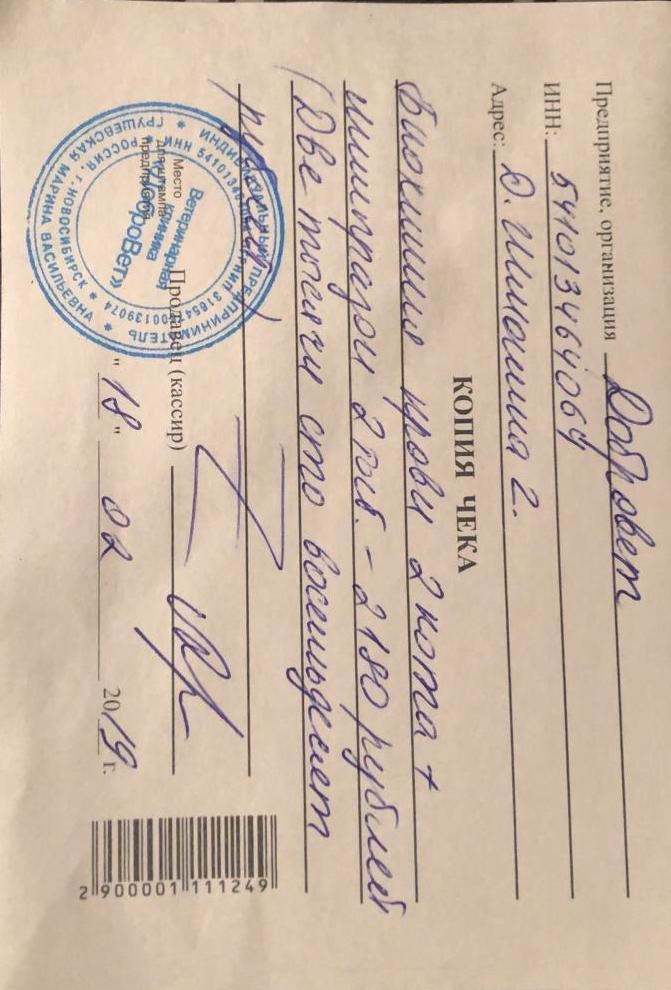 Предприятие, организация Добровет
ИНН: 541013464064
Адрес: Д. Шмонина 2.
КОПИЯ ЧЕКА
Биохимия крови 2 кота +
2 таб. – 2180 рублей
(Две тысячи сто восемьдесят
рублей)
Место
для штампа
предприятия
ИНДИВИДУАЛЬНЫЙ ПРЕДПРИНИМАТЕЛЬ
ГРУШЕВСКАЯ МАРИНА ВАСИЛЬЕВНА
РОССИЯ, г. НОВОСИБИРСК
Ветеринарная
клиника
«ДоброВет»
Продавец (кассир)
"18" 02 2019 г.
2 900001 111249